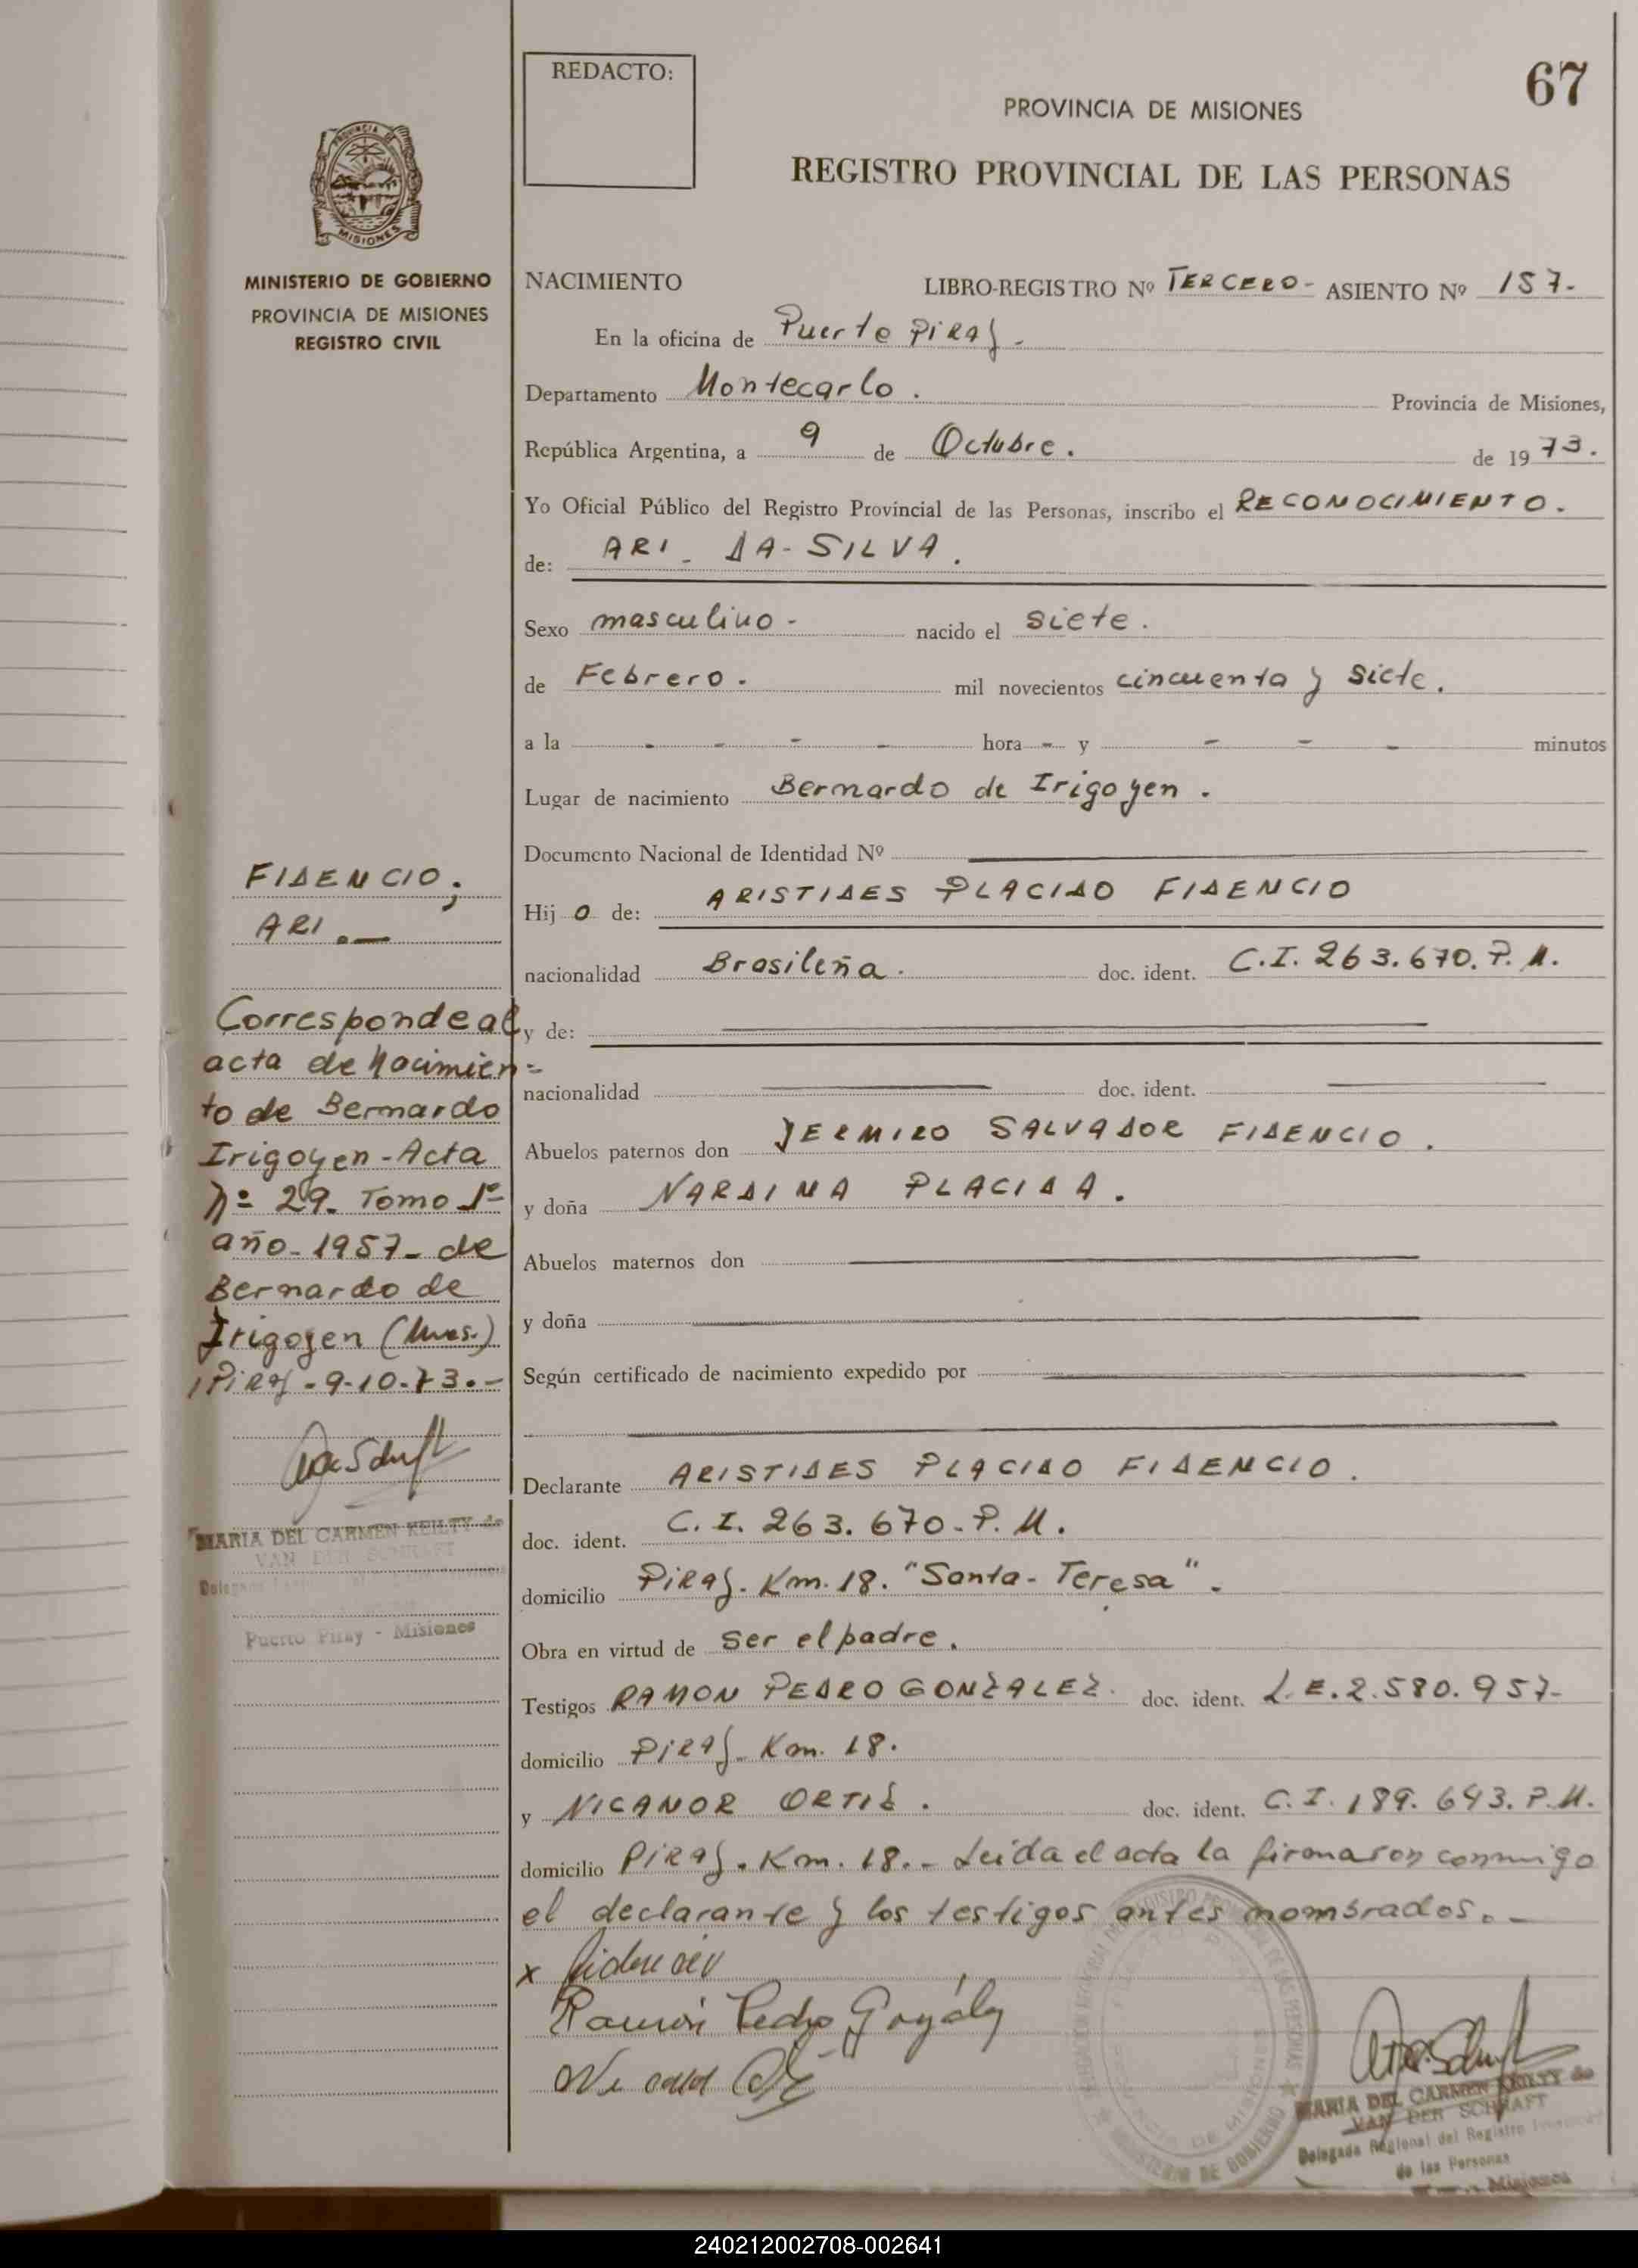 REDACTO:
67
PROVINCIA DE MISIONES
REGISTRO PROVINCIAL DE LAS PERSONAS
MISIONES
MINISTERIO DE GOBIERNO
PROVINCIA DE MISIONES
REGISTRO CIVIL
FIDENCIO;
ARI.—
Corresponde al
acta de Nacimien=
to de Bernardo
Irigoyen - Acta
Nº 29. Tomo 1º
año - 1957 - de
Bernardo de
Irigoyen (Mnes.)
Piray - 9-10-73.-
MARIA DEL CARMEN KEILTY de
VAN DER SCHRAFT
Puerto Piray - Misiones
NACIMIENTO LIBRO-REGISTRO Nº TERCERO- ASIENTO Nº 157.
En la oficina de Puerto Piray -
Departamento Montecarlo. Provincia de Misiones,
República Argentina, a 9 de Octubre. de 1973.
Yo Oficial Público del Registro Provincial de las Personas, inscribo el RECONOCIMIENTO.
de: ARI - DA-SILVA.
Sexo masculino - nacido el siete.
de Febrero. mil novecientos cincuenta y siete.
a la - - - - hora - y - - - minutos
Lugar de nacimiento Bernardo de Irigoyen.
Documento Nacional de Identidad Nº
Hij o de: ARISTIDES PLACIDO FIDENCIO
nacionalidad Brasileña. doc. ident. C.I. 263.670. P. M.
y de:
nacionalidad doc. ident.
Abuelos paternos don JERMIRO SALVADOR FIDENCIO.
y doña NARDINA PLACIDA.
Abuelos maternos don
y doña
Según certificado de nacimiento expedido por
Declarante ARISTIDES PLACIDO FIDENCIO.
doc. ident. C. I. 263. 670 - P. M.
domicilio Piray. Km. 18. "Santa - Teresa".
Obra en virtud de ser el padre.
Testigos RAMON PEDRO GONZALEZ. doc. ident. L.E. 2.580.957-
domicilio Piray - Km. 18.
y NICANOR ORTIZ. doc. ident. C. I. 189. 643. P. M.
domicilio Piray. Km. 18.- Leida el acta la firmaron conmigo
el declarante y los testigos antes nombrados.-
x Fidencio
Ramón Pedro González
MINISTERIO DE GOBIERNO
MARIA DEL CARMEN KEILTY de
VAN DER SCHRAFT
Delegada Regional del Registro
de las Personas
Misiones
240212002708-002641